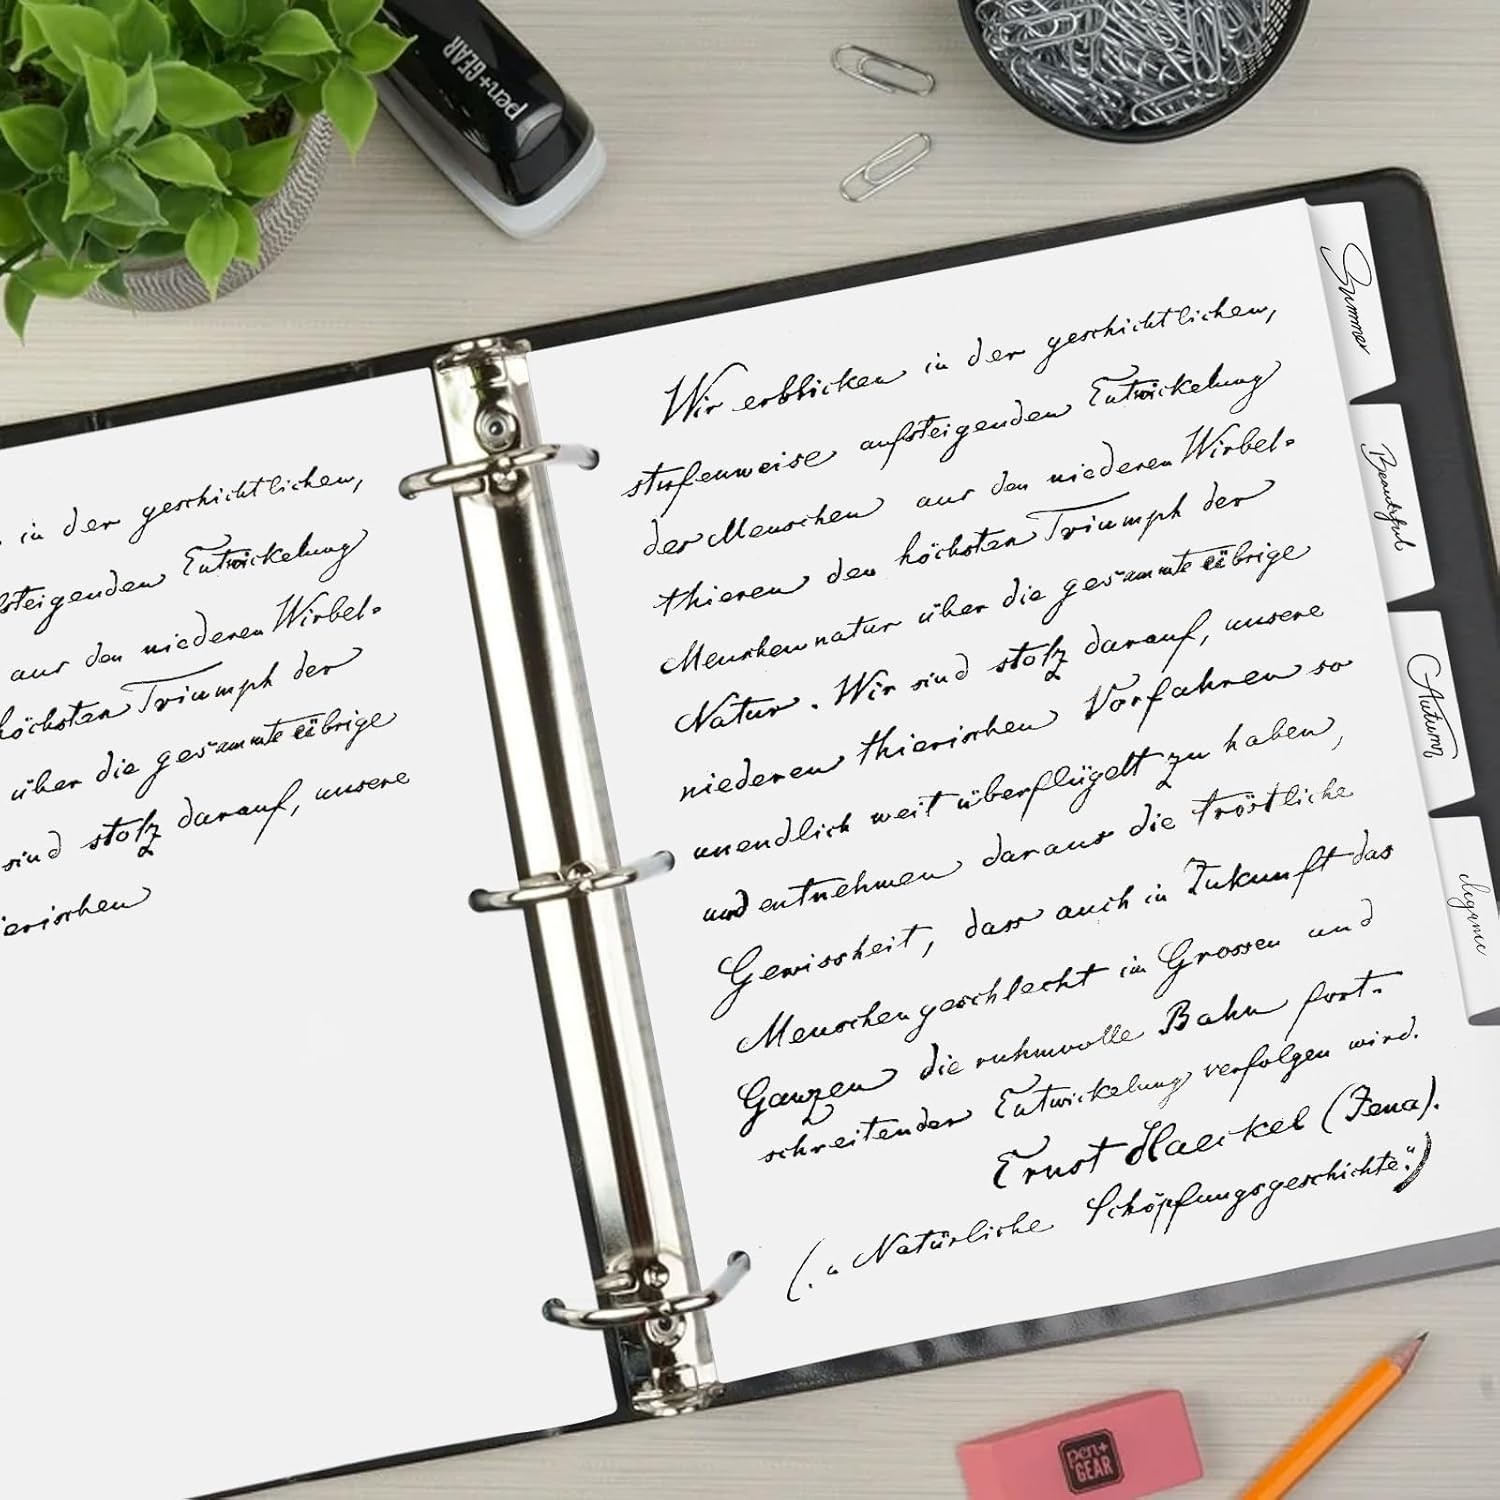 pen+GEAR
in der geschichtlichen,
steigenden Entwickelung
aus den niederen Wirbel-
höchsten Triumph der
über die gesammte übrige
sind stolz darauf, unsere
ierischen
Wir erblicken in der geschichtlichen,
stufenweise aufsteigenden Entwickelung
der Menschen aus den niederen Wirbel-
thieren den höchsten Triumph der
Menschennatur über die gesammte übrige
Natur. Wir sind stolz darauf, unsere
niederen thierischen Vorfahren so
unendlich weit überflügelt zu haben,
und entnehmen daraus die tröstliche
Gewissheit, dass auch in Zukunft das
Menschengeschlecht im Grossen und
Ganzen die ruhmvolle Bahn fort-
schreitender Entwickelung verfolgen wird.
Ernst Haeckel (Jena).
(. „Natürliche Schöpfungsgeschichte.")
Summer
Beautiful
Autumn
elegance
pen+
GEAR